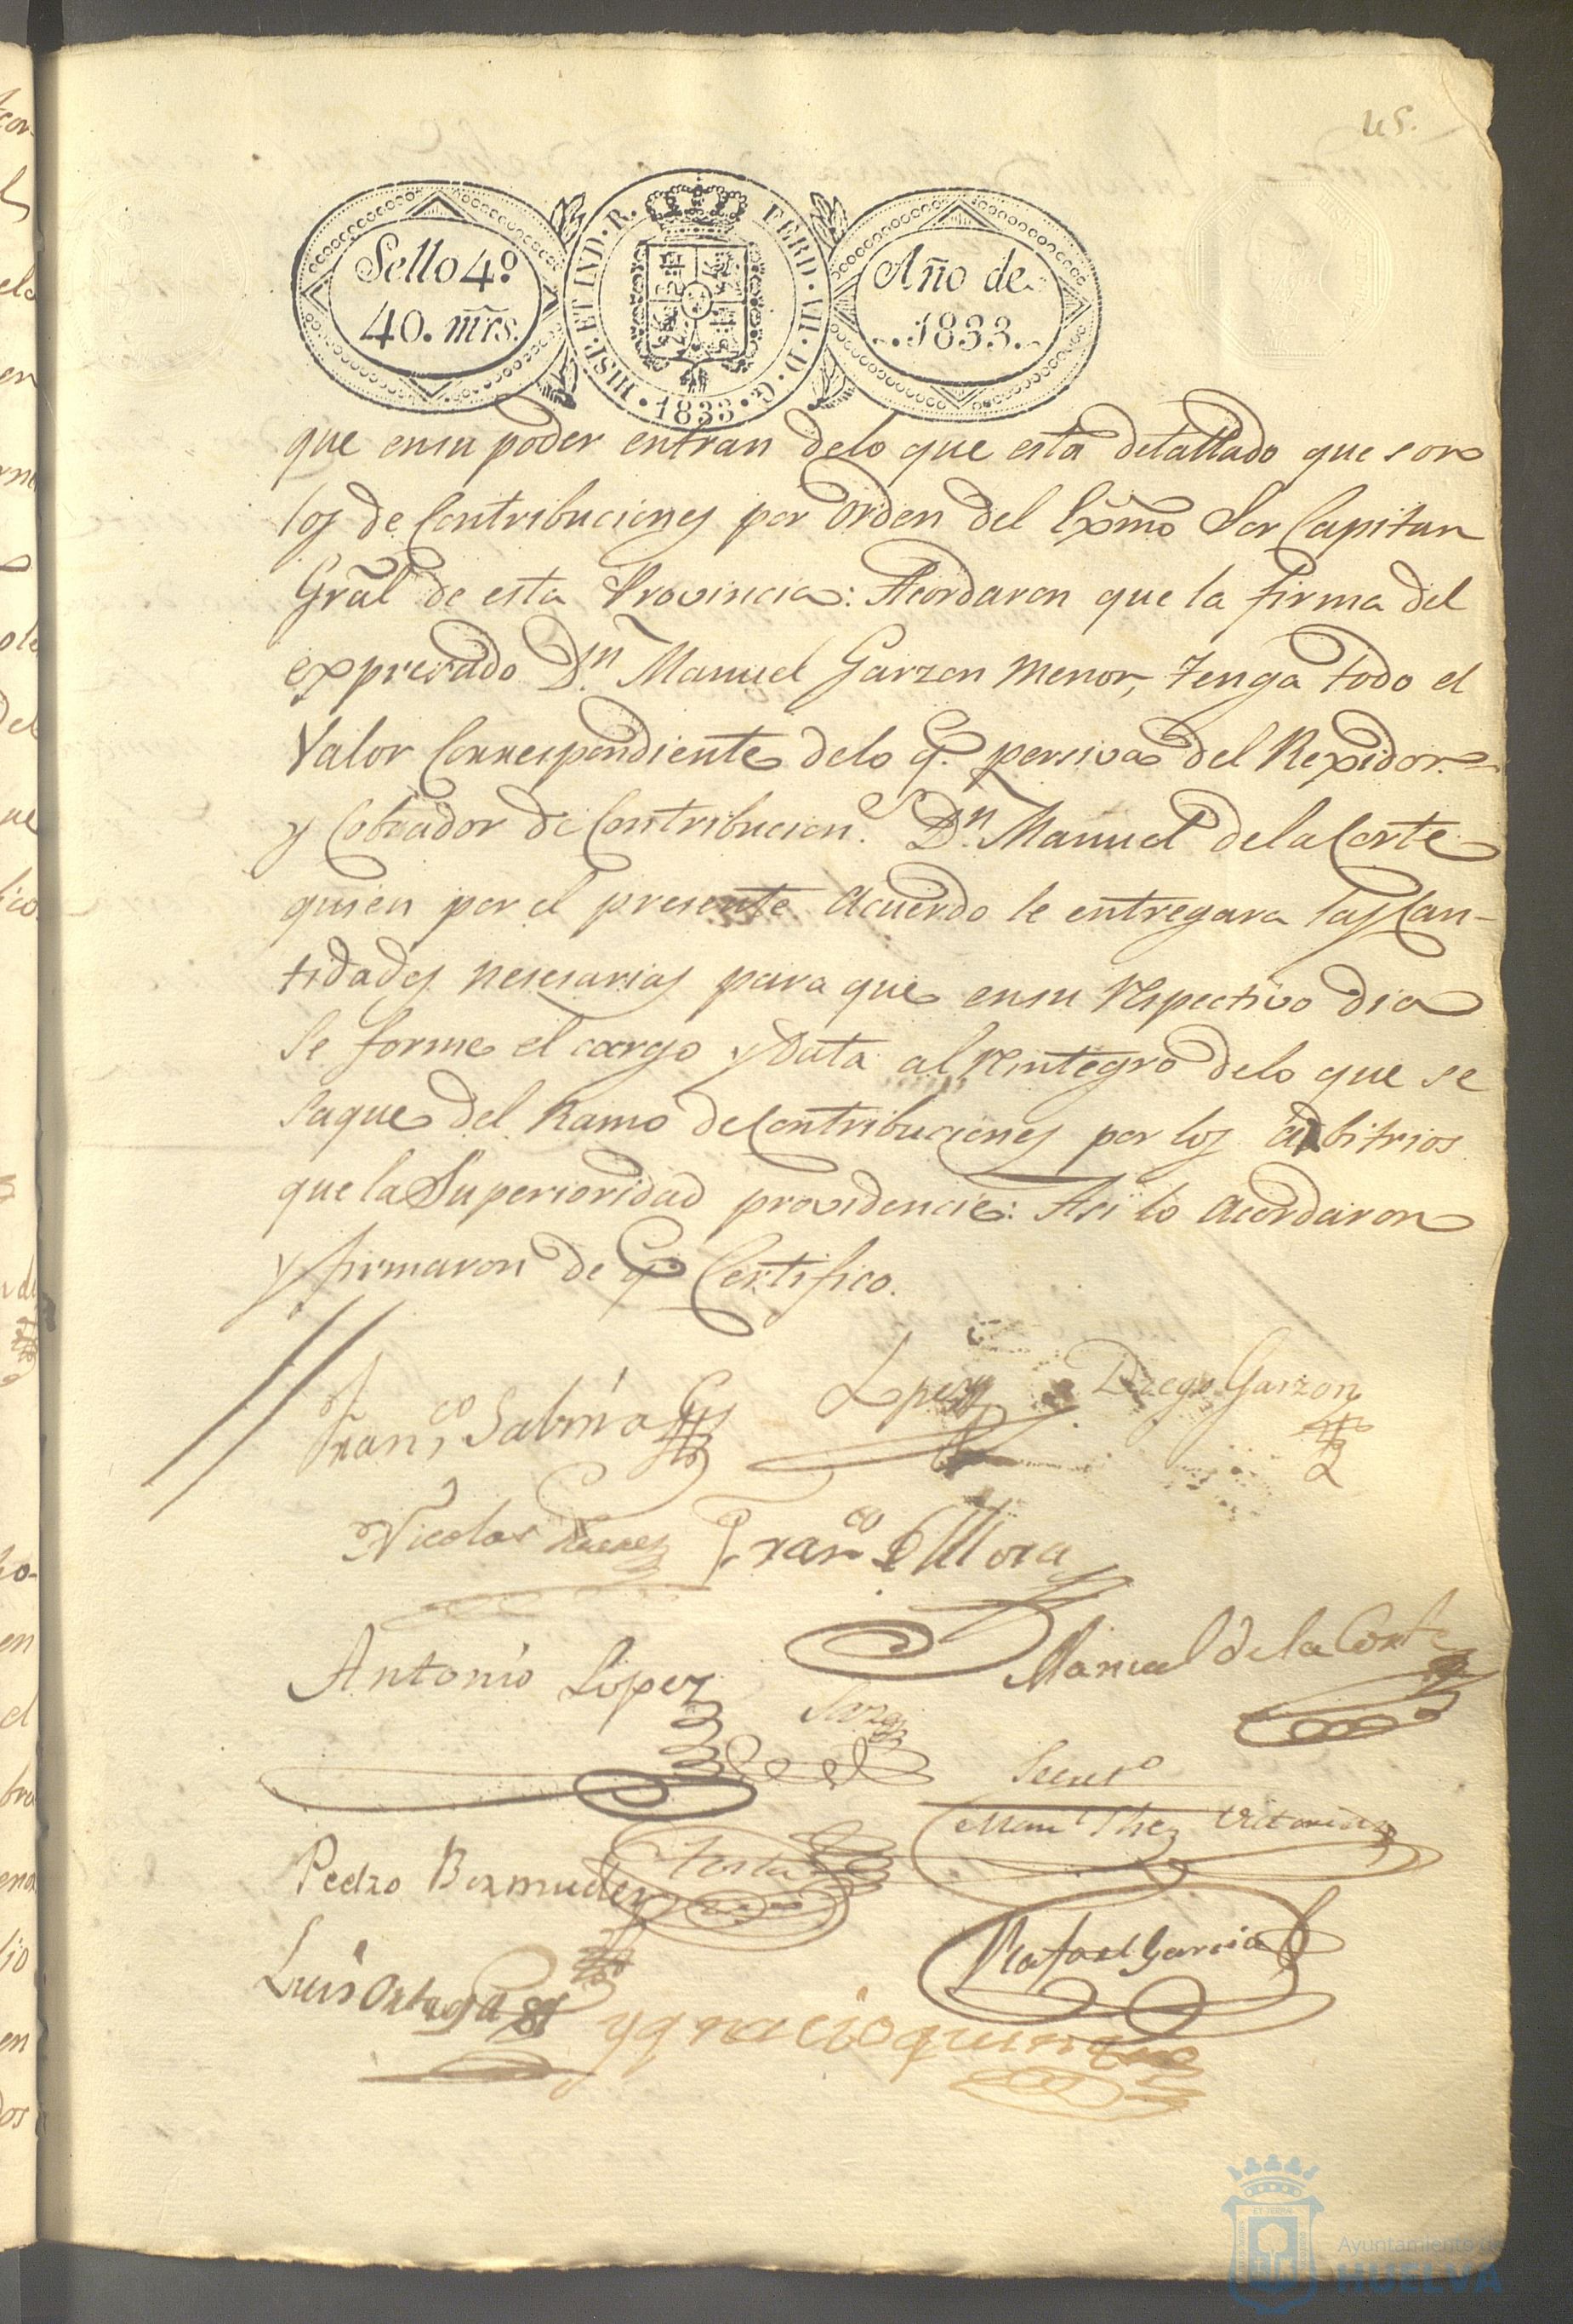 45.
Sello 4º
40. mrs.
HISP. ET IND. R. FERD. VII. D. G. 1833.
Año de
1833.
que ensu poder entran delo que esta detallado que son
los de Contribuciones por Orden del Exmo Sor Capitan
Gral de esta Provincia: Acordaron que la firma del
expresado Dn Manuel Garzon menor, tenga todo el
Valor Correspondiente delo q. persiva del Rexidor
y Cobrador de Contribucion.s Dn Manuel dela Corte
quien por el presente acuerdo le entregara las Can-
tidades nesesarias para que ensu respectivo dia
se forme el cargo y data al reintegro delo que se
saque del Ramo de Contribuciones por los arbitrios
que la Superioridad providencie: Asi lo acordaron
y firmaron de q. Certifico.
Franco Salmᵃ
Lopez
Diego Garzon
Nicolas
Franco Mora
Antonio Lopez
Manuel de la Corte
Secret.o
Pedro Bermudez
Testa
Rafael Garcia
Luis Ortega
ygnacio
Ayuntamiento de
HUELVA